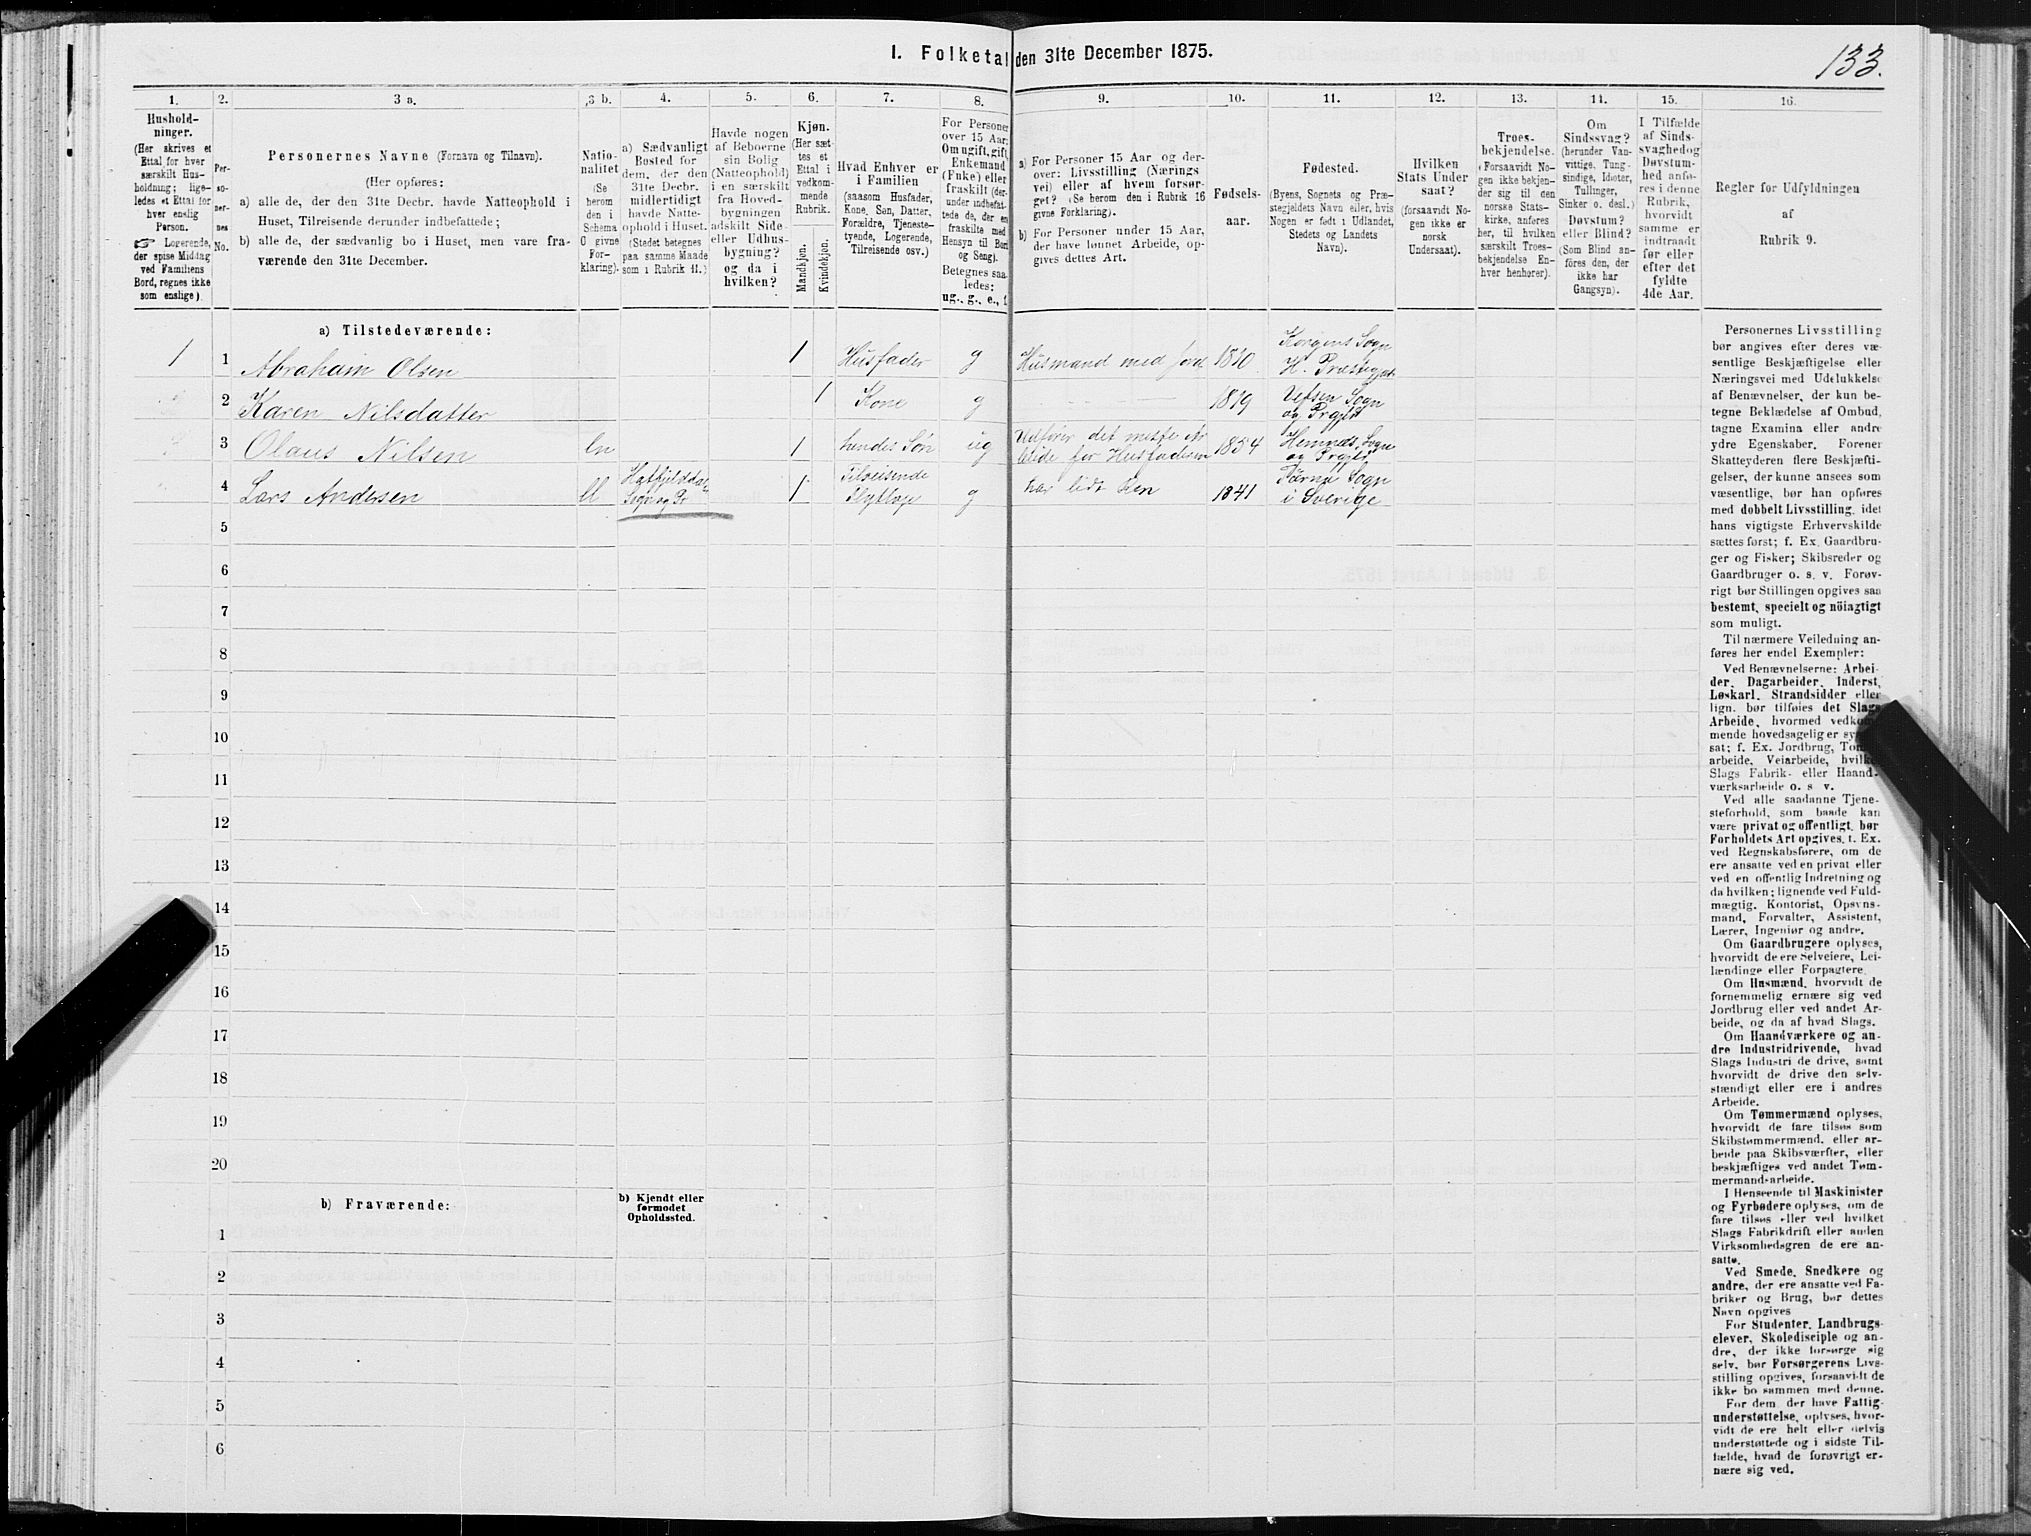 I. Folketal den 31te December 1875.
133.
1.
2.
3 a.
3 b.
4.
5.
6.
7.
8.
9.
10.
11.
12.
13.
14.
15.
16.
Hushold-
ninger.
(Her skrives et
Ettal for hver
særskilt Hus-
holdning; lige-
ledes et Ettal for
hver enslig
Person.
☞ Logerende,
der spise Middag
ved Familiens
Bord, regnes ikke
som enslige).
Per-
so-
ner-
nes
No.
Personernes Navne (Fornavn og Tilnavn).
(Her opføres:
a) alle de, der den 31te Decbr. havde Natteophold i
Huset, Tilreisende derunder indbefattede;
b) alle de, der sædvanlig bo i Huset, men vare fra-
værende den 31te December.
Natio-
nalitet
(Se
herom
den i
Schema
O givne
For-
klaring).
a) Sædvanligt
Bosted for
dem, der den
31te Decbr.
midlertidigt
havde Natte-
ophold i Huset.
(Stedet betegnes
paa samme Maade
som i Rubrik 11.)
Havde nogen
af Beboerne
sin Bolig
(Natteophold)
i en særskilt
fra Hoved-
bygningen
adskilt Side-
eller Udhus-
bygning?
og da i
hvilken?
Kjøn.
(Her sæt-
tes et
Ettal i
vedkom-
mende
Rubrik.
Mandkjøn.
Kvindekjøn.
Hvad Enhver er
i Familien
(saasom Husfader,
Kone, Søn, Datter,
Forældre, Tjeneste-
tyende, Logerende,
Tilreisende osv.)
For Personer
over 15 Aar:
Om ugift, gift,
Enkemand
(Enke) eller
fraskilt (der-
under indbefat-
tede de, der ere
fraskilte med
Hensyn til Bord
og Seng).
Betegnes saa-
ledes:
ug., g., e., f.
a) For Personer 15 Aar og der-
over: Livsstilling (Nærings
vei) eller af hvem forsør-
get? (Se herom den i Rubrik 16
givne Forklaring.)
b) For Personer under 15 Aar,
der have lønnet Arbeide, op-
gives dettes Art.
Fødsels-
aar.
Fødested.
(Byens, Sognets og Præ-
stegjeldets Navn eller, hvis
Nogen er født i Udlandet,
Stedets og Landets
Navn).
Hvilken
Stats Under
saat?
(forsaavidt No-
gen ikke er
norsk
Undersaat).
Troes-
bekjendelse.
(Forsaavidt No-
gen ikke bekjen-
der sig til den
norske Stats-
kirke, anføres
her, til hvilken
særskilt Troes-
bekjendelse En-
hver henhører).
Om
Sindssvag?
(herunder Van-
vittige, Tung-
sindige, Idioter,
Tullinger,
Sinker o. desl.)
Døvstum?
eller Blind?
(Som Blind an-
føres den, der
ikke har
Gangsyn).
I Tilfælde
af Sinds-
svaghed og
Døvstum-
hed anfø-
res i denne
Rubrik,
hvorvidt
samme er
indtraadt
før eller
efter det
fyldte
4de Aar.
Regler for Udfyldningen
af
Rubrik 9.
a) Tilstedeværende:
1 1 Abraham Olsen 1 Husfader g Husmand med Jord 1810 Korgens Sogn
H. Præstegjeld
2 Karen Nilsdatter 1 Kone g 1819 Vefsen Sogn
og Prgjld
3 Olaus Nilsen ln 1 hendes Søn ug Udfører det meste Ar
beide for Husfaderen 1854 Hemnæs Sogn
og Prgjld
4 Lars Andersen ll Hatfjelddal
Sogn og Pr 1 Tilreisende
Flytlap g har lidt Ren 1841 Tärna Sogn
i Sverige
5
6
7
8
9
10
11
12
13
14
15
16
17
18
19
20
b) Fraværende:
b) Kjendt eller
formodet
Opholdssted.
1
2
3
4
5
6
Personernes Livsstilling
bør angives efter deres væ-
sentlige Beskjæftigelse eller
Næringsvei med Udelukkelse
af Benævnelser, der kun be-
tegne Beklædelse af Ombud,
tagne Examina eller andre
ydre Egenskaber. Forener
Skatteyderen flere Beskjæfti-
gelser, der kunne ansees som
væsentlige, bør han opføres
med dobbelt Livsstilling, idet
hans vigtigste Erhvervskilde
sættes først; f. Ex. Gaardbru-
ger og Fisker; Skibsreder og
Gaardbruger o. s. v. Forøv-
rigt bør Stillingen opgives saa
bestemt, specielt og nöiagtigt
som muligt.
Til nærmere Veiledning an-
føres her endel Exempler:
Ved Benævnelserne: Arbei-
der, Dagarbeider, Inderst,
Løskarl, Strandsidder eller
lign. bør tilføies det Slags
Arbeide, hvormed vedkom-
mende hovedsagelig er sys
sat; f. Ex. Jordbrug, Tom
arbeide, Veiarbeide, hvilke
Slags Fabrik- eller Haand-
værksarbeide o. s v.
Ved alle saadanne Tjene-
steforhold, som baade kan
være privat og offentligt, bør
Forholdets Art opgives, t. Ex.
ved Regnskabsførere, om de
ere ansatte ved en privat eller
ved en offentlig Indretning og
da hvilken; lignende ved Fuld-
mægtig, Kontorist, Opsyns-
mand, Forvalter, Assistent,
Lærer, Ingeniør og andre.
Om Gaardbrugere oplyses,
hvorvidt de ere Selveiere, Lei-
lændinge eller Forpagtere.
Om Husmænd, hvorvidt de
fornemmelig ernære sig ved
Jordbrug eller ved andet Ar-
beide, og da af hvad Slags.
Om Haandværkere og an-
dre Industridrivende, hvad
Slags Industri de drive, samt
hvorvidt de drive den selv-
stændigt eller ere i andres
Arbeide.
Om Tømmermænd oplyses,
hvorvidt de fare tilsøs som
Skibstømmermænd, eller ar-
beide paa Skibsværfter, eller
beskjæftiges ved andet Tøm-
mermandsarbeide.
I Henseende til Maskinister
og Fyrbødere oplyses, om de
fare tilsøs eller ved hvilket
Slags Fabrikdrift eller anden
Virksomhedsgren de ere an-
satte.
Ved Smede, Snedkere og
andre, der ere ansatte ved Fa-
briker og Brug, bør dettes
Navn opgives
For Studenter, Landbrugs-
elever, Skoledisciple og an-
dre, der ikke forsørge sig
selv, bør Forsørgerens Livs-
stilling opgives, forsaavidt de
ikke bo sammen med denne.
For dem, der have Fattig-
understøttelse, oplyses, hvor-
vidt de ere helt eller delvis
understøttede og i sidste Til-
fælde, hvad de forøvrigt er-
nære sig ved.